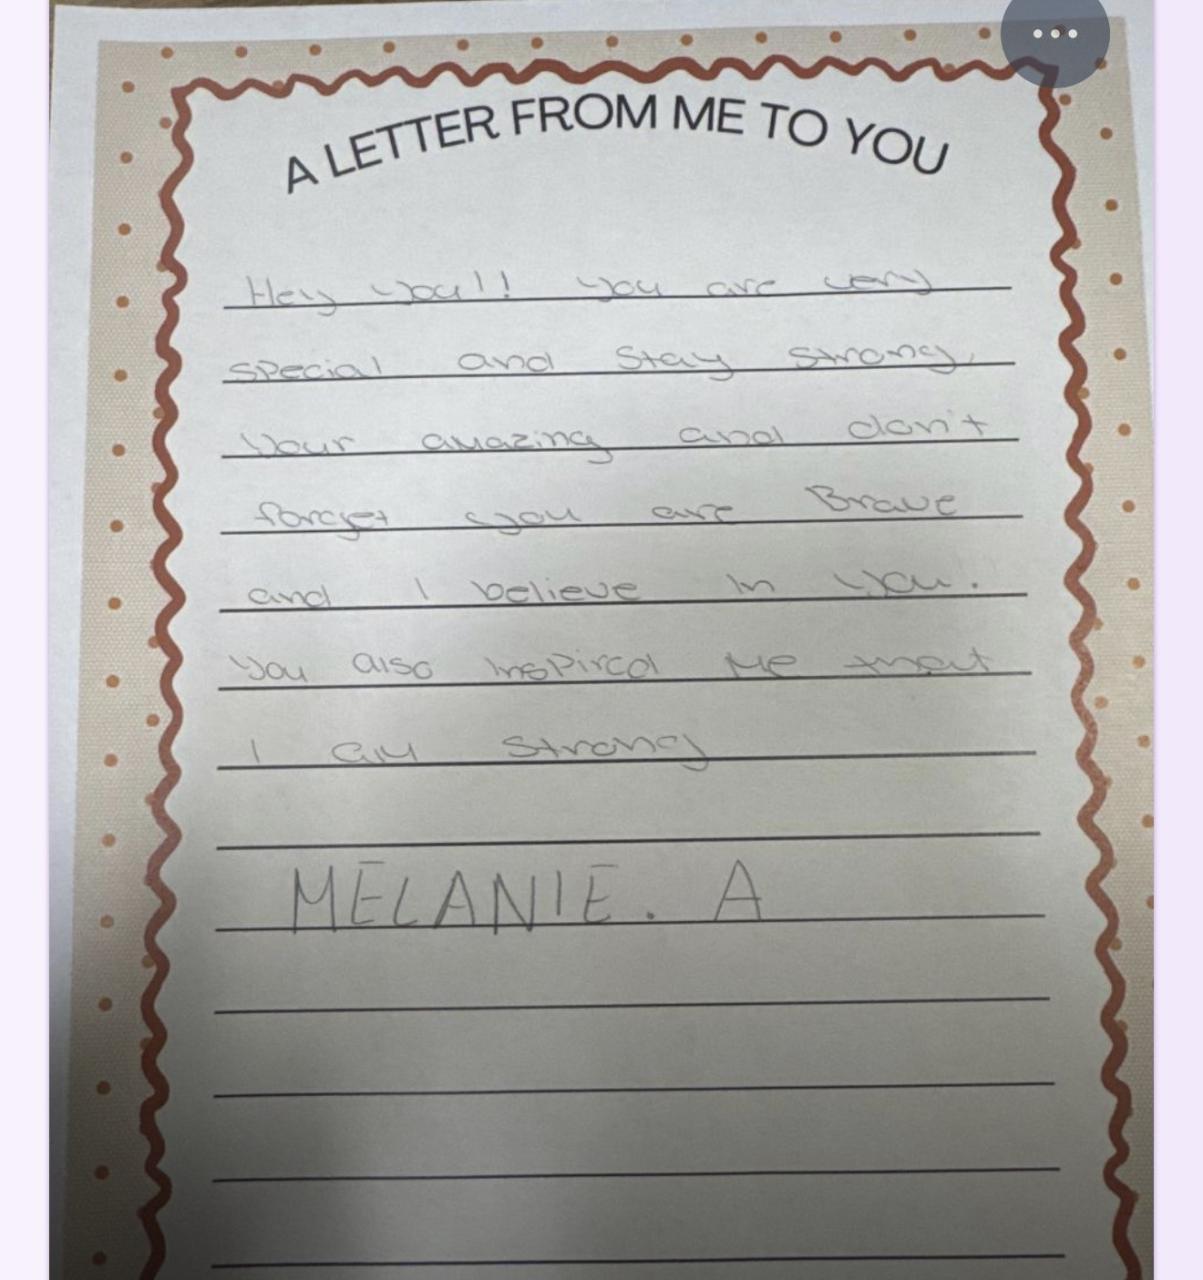 A LETTER FROM ME TO YOU
Hey you!! you are very
special and stay strong,
Your amazing and don't
forget you are Brave
and I believe in you.
You also inspired Me that
I am strong
MELANIE. A